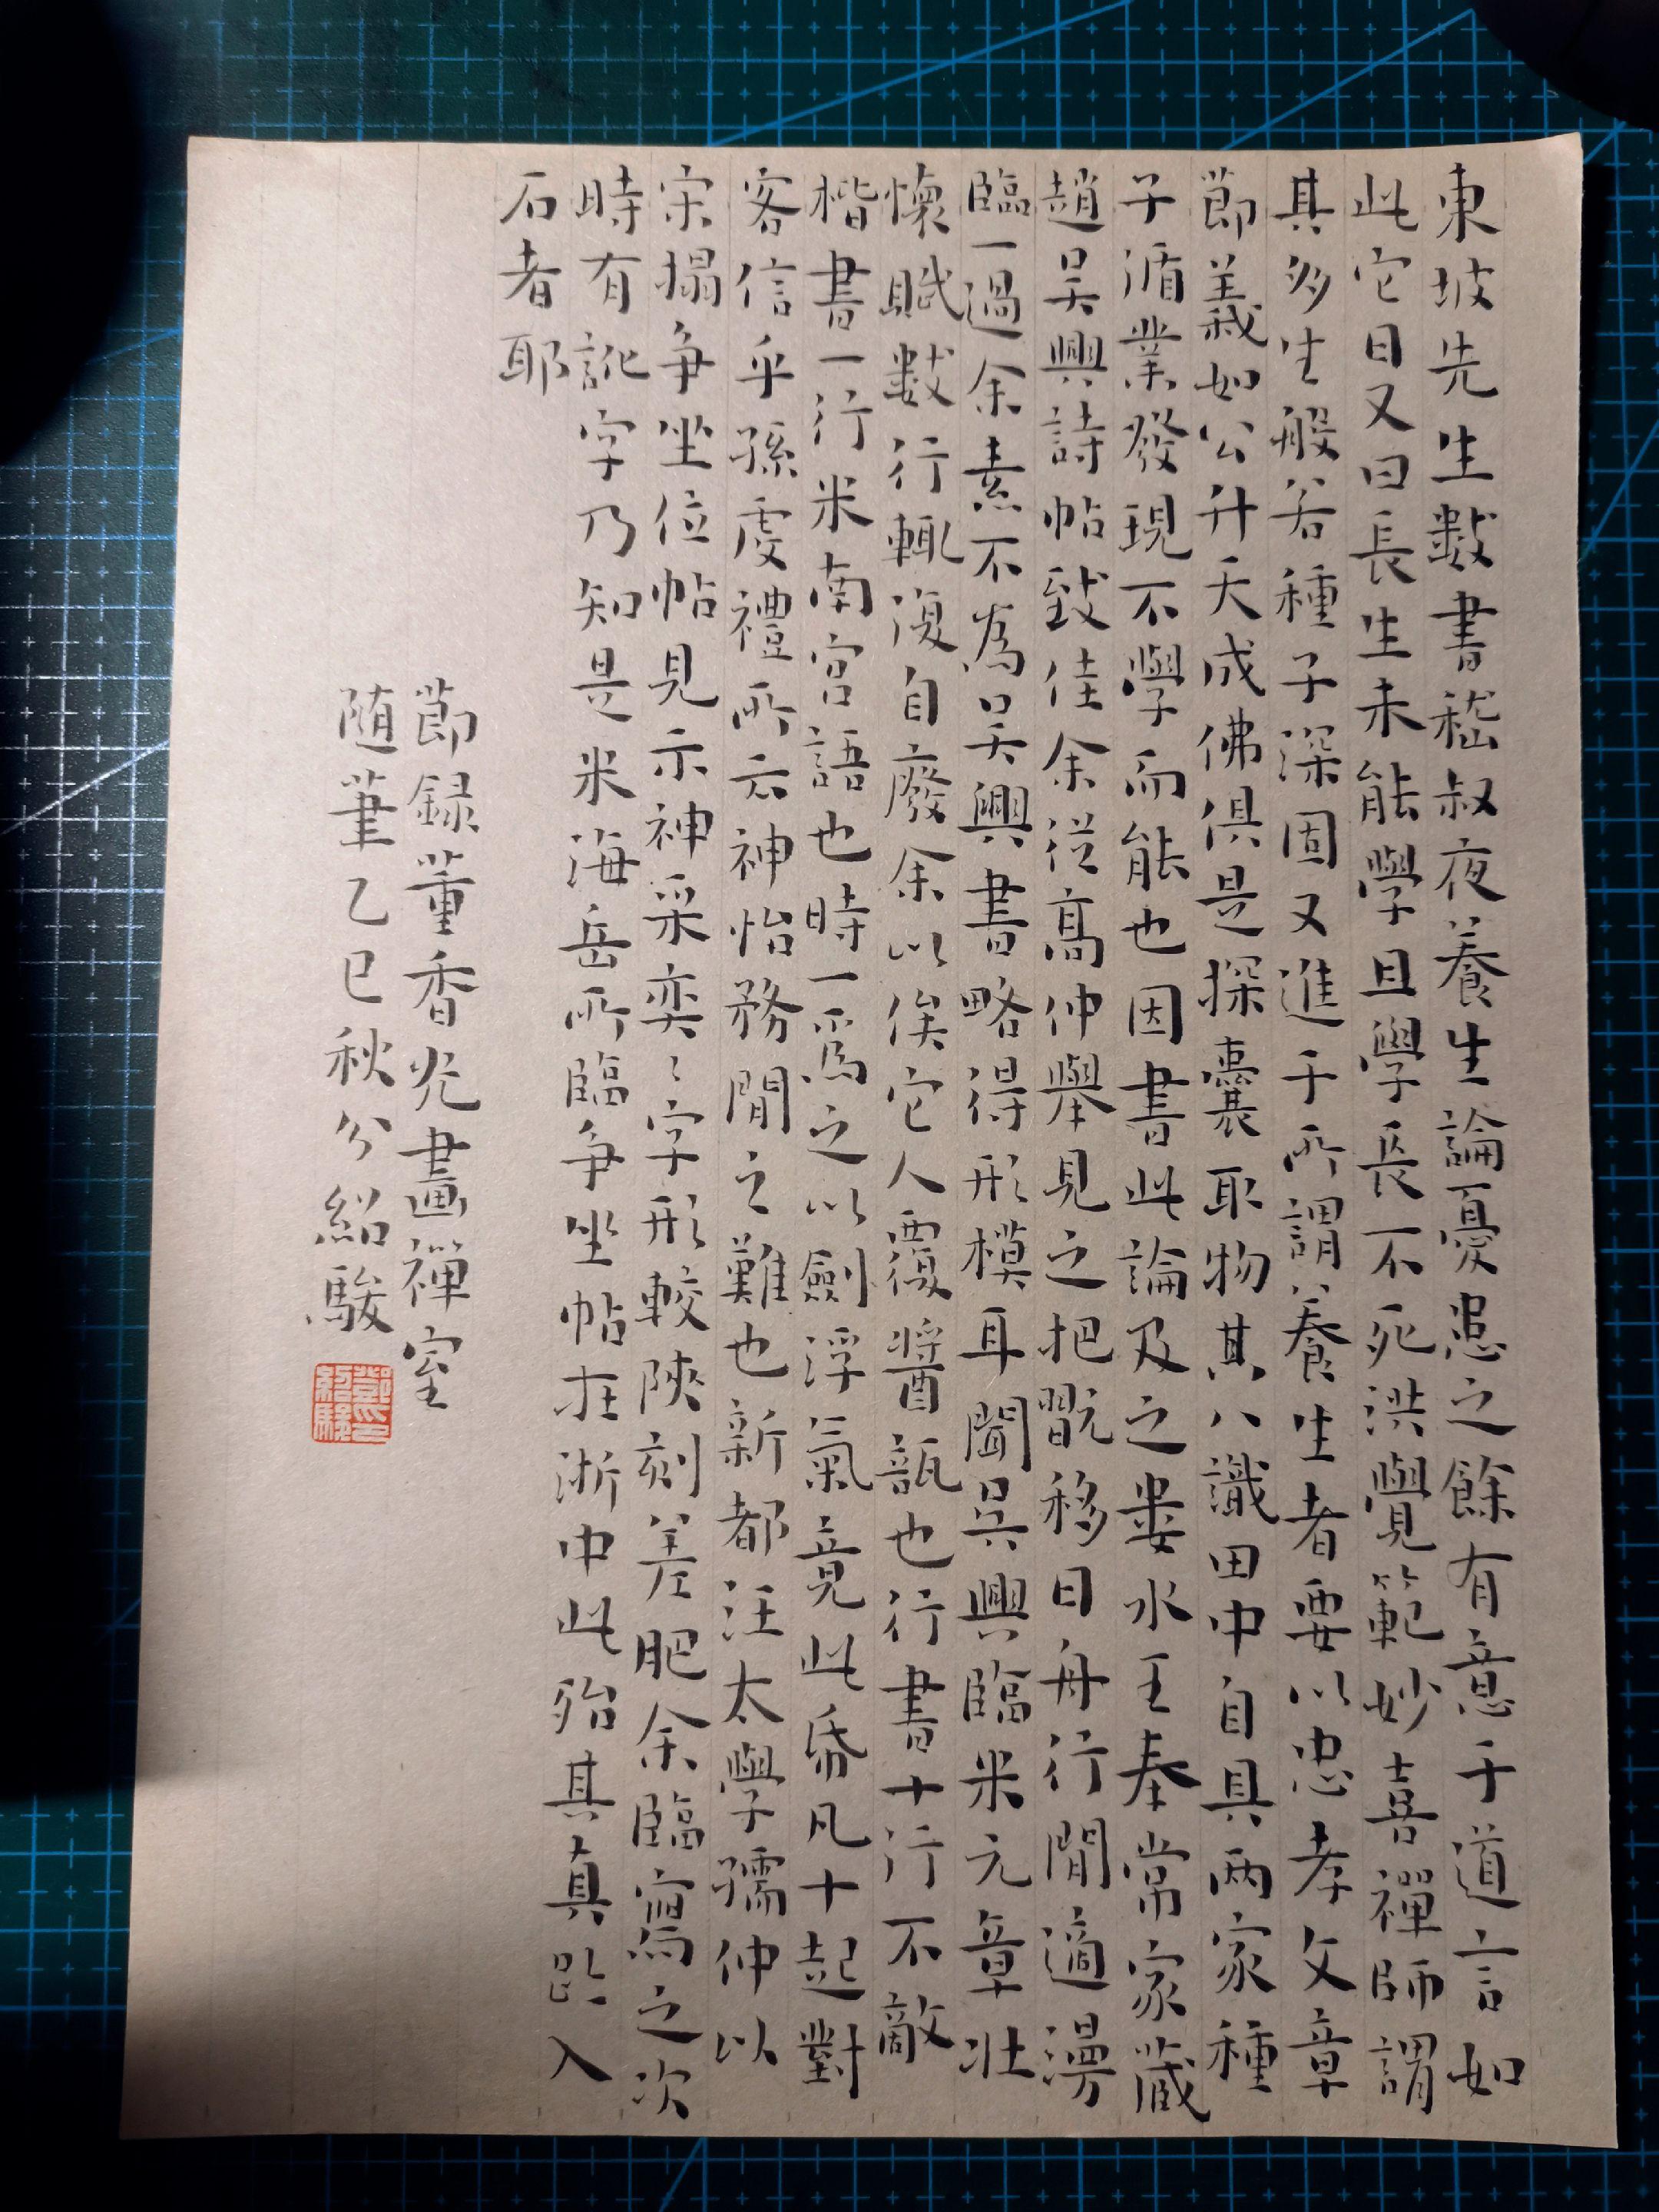 東坡先生數書嵇叔夜養生論憂患之餘有意于道言如
此它日又曰長生未能學且學長不死洪覺範妙喜禪師謂
其多生般若種子深固又進于所謂養生者要以忠孝文章
節義如公升天成佛俱是探囊取物其八識田中自具兩家種
子循業發現不學而能也因書此論及之婁水王奉常家藏
趙吳興詩帖致佳余從高仲舉見之把翫移日舟行閒適漫
臨一過余素不為吳興書略得形模耳聞吳興臨米元章壯
懷賦數行輒復自廢余以俟它人覆醬瓿也行書十行不敵
楷書一行米南宮語也時一為之以劍浮氣竟此帋凡十起對
客信乎孫虔禮所云神怡務閒之難也新都汪太學孺仲以
宋搨爭坐位帖見示神采奕〻字形較陝刻差肥余臨寫之次
時有訛字乃知是米海岳所臨爭坐帖在浙中此殆其真跡入
石者耶
節錄董香光畫禪室
随筆乙巳秋分紹駿
鄧印紹駿